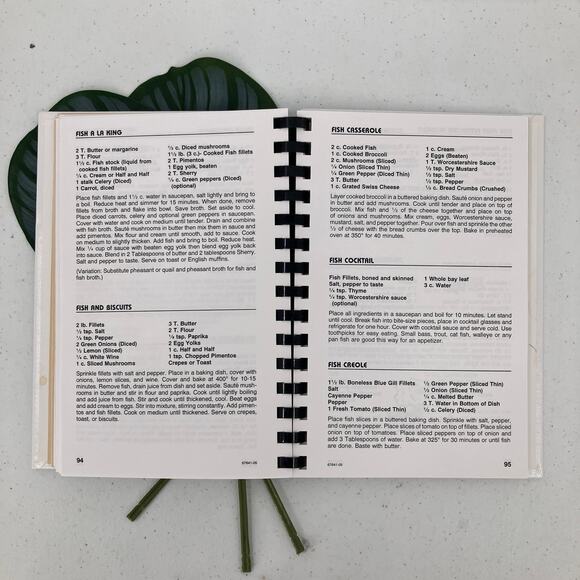 FISH A LA KING
2 T. Butter or margarine
3 T. Flour
1½ c. Fish stock (liquid from
cooked fish fillets)
¼ c. Cream or Half and Half
1 stalk Celery (Diced)
1 Carrot, diced
⅓ c. Diced mushrooms
1½ lb. (3 c.)- Cooked Fish fillets
2 T. Pimentos
1 Egg yolk, beaten
2 T. Sherry
¼ c. Green peppers (Diced)
(optional)
Place fish fillets and 1½ c. water in saucepan, salt lightly and bring to
a boil. Reduce heat and simmer for 15 minutes. When done, remove
fillets from broth and flake into bowl. Save broth. Set aside to cool.
Place diced carrots, celery and optional green peppers in saucepan.
Cover with water and cook on medium until tender. Drain and combine
with fish broth. Sauté mushrooms in butter then mix them in sauce and
add pimentos. Mix flour and cream until smooth, add to sauce. Cook
on medium to slightly thicken. Add fish and bring to boil. Reduce heat.
Mix ¼ cup of sauce with beaten egg yolk then blend egg yolk back
into sauce. Blend in 2 Tablespoons of butter and 2 tablespoons Sherry.
Salt and pepper to taste. Serve on toast or English muffins.
(Variation: Substitute pheasant or quail and pheasant broth for fish and
fish broth.)
FISH AND BISCUITS
2 lb. Fillets
½ tsp. Salt
¼ tsp. Pepper
2 Green Onions (Diced)
½ Lemon (Sliced)
¼ c. White Wine
1 c. Sliced Mushrooms
3 T. Butter
2 T. Flour
¼ tsp. Paprika
2 Egg Yolks
1 c. Half and Half
1 tsp. Chopped Pimentos
Crepes or Toast
Sprinkle fillets with salt and pepper. Place in a baking dish, cover with
onions, lemon slices, and wine. Cover and bake at 400° for 10-15
minutes. Remove fish, drain juice from dish and set aside. Sauté mush-
rooms in butter and stir in flour and paprika. Cook until lightly boiling
and add juice from fish. Stir and cook until thickened, cool. Beat eggs
and add cream to eggs. Stir into mixture, stirring constantly. Add pimen-
tos and fish fillets. Cook on medium until thickened. Serve on crepes,
toast, or biscuits.
94
67641-05
FISH CASSEROLE
2 c. Cooked Fish
1 c. Cooked Broccoli
2 c. Mushrooms (Sliced)
¼ Onion (Sliced Thin)
¼ Green Pepper (Diced Thin)
3 T. Butter
1 c. Grated Swiss Cheese
1 c. Cream
2 Eggs (Beaten)
1 T. Worcestershire Sauce
½ tsp. Dry Mustard
½ tsp. Salt
¼ tsp. Pepper
½ c. Bread Crumbs (Crushed)
Layer cooked broccoli in a buttered baking dish. Sauté onion and pepper
in butter and add mushrooms. Cook until tender and place on top of
broccoli. Mix fish and ½ of the cheese together and place on top of
of onions and mushrooms. Mix cream, eggs, Worcestershire sauce,
mustard, salt, and pepper together. Pour over fish and sprinkle the other
½ of cheese with the bread crumbs over the top. Bake in preheated
oven at 350° for 40 minutes.
FISH COCKTAIL
Fish Fillets, boned and skinned
Salt, pepper to taste
¼ tsp. Thyme
¼ tsp. Worcestershire sauce
(optional)
1 Whole bay leaf
3 c. Water
Place all ingredients in a saucepan and boil for 10 minutes. Let stand
until cool. Break fish into bite-size pieces, place in cocktail glasses and
refrigerate for one hour. Cover with cocktail sauce and serve cold. Use
toothpicks for easy eating. Small bass, trout, cat fish, walleye or any
pan fish are good this way for an appetizer.
FISH CREOLE
1½ lb. Boneless Blue Gill Fillets
Salt
Cayenne Pepper
Pepper
1 Fresh Tomato (Sliced Thin)
½ Green Pepper (Sliced Thin)
½ Onion (Sliced Thin)
¼ c. Melted Butter
3 T. Water in Bottom of Dish
½ c. Celery (Diced)
Place fish slices in a buttered baking dish. Sprinkle with salt, pepper,
and cayenne pepper. Place slices of tomato on top of fillets. Place sliced
onion on top of tomatoes. Place sliced peppers on top of onion and
add 3 Tablespoons of water. Bake at 325° for 30 minutes or until fish
are done. Baste with butter.
67641-05
95